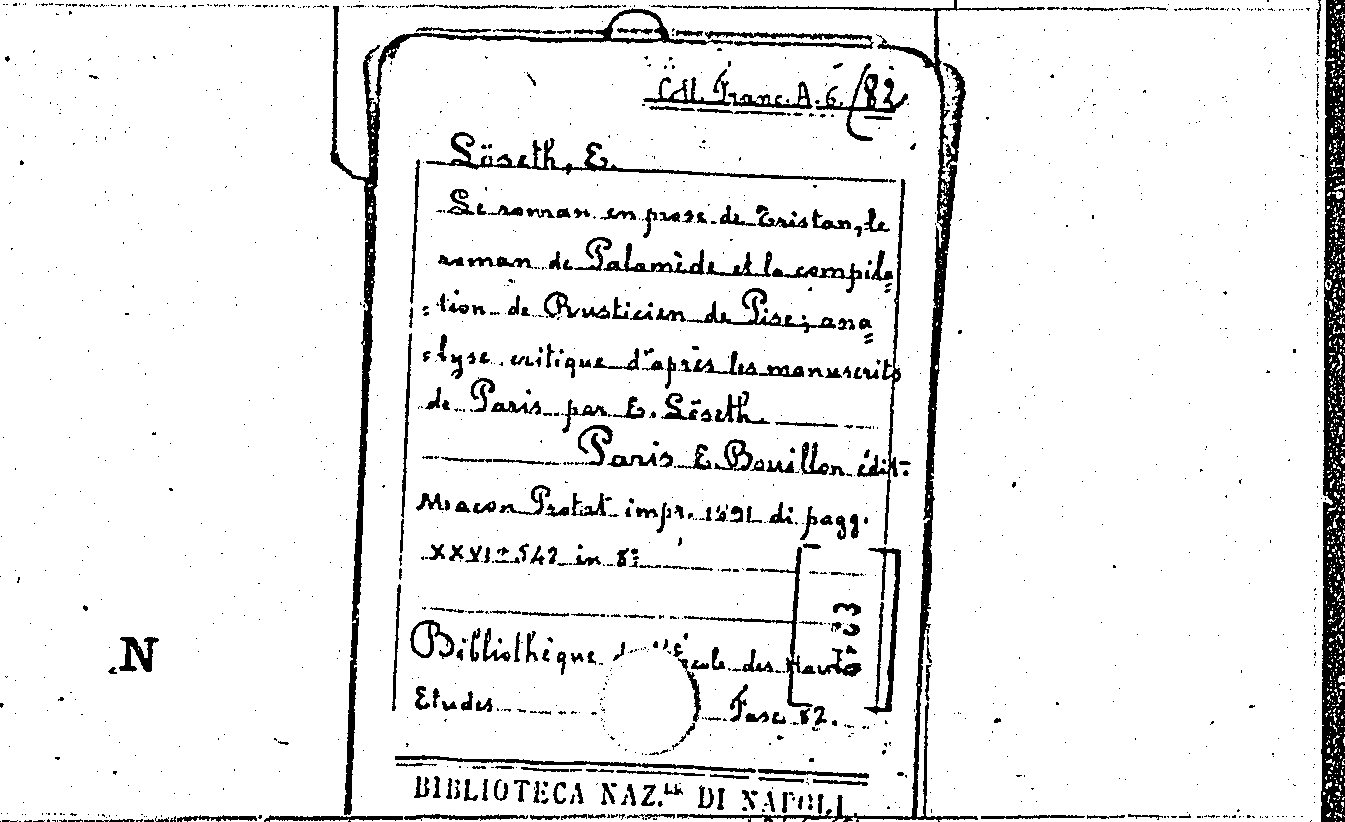 Coll. Franc. A. 6. /82
Löseth, E.
Le roman en prose de Tristan, le
roman de Palamède et la compila=
=tion de Rusticien de Pise; ana=
=lyse critique d'après les manuscrits
de Paris par E. Löseth.
Paris E. Bouillon édit.
Macon Protat impr. 1891 di pagg.
XXVI+542 in 8º
Bibliothèque de l'École des Hautes
Etudes Fasc 82.
BIBLIOTECA NAZ.LE DI NAPOLI
N